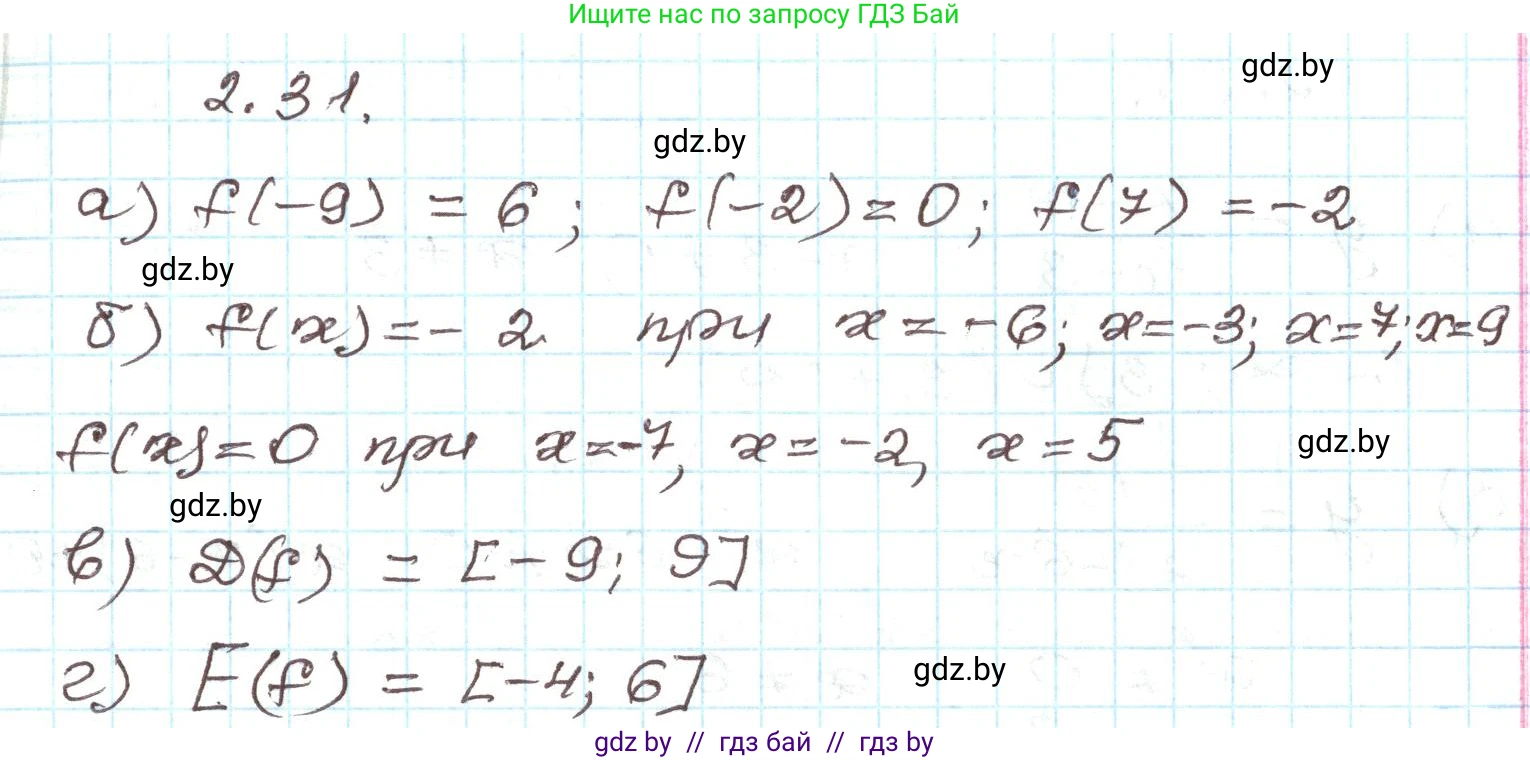 Ищите нас по запросу ГДЗ Бай
gdz.by
2.31.
gdz.by
а) f(-9) = 6; f(-2)=0; f(7) = -2
gdz.by
б) f(x)=-2 при x=-6; x=-3; x=7; x=9
f(x)=0 при x=-7, x=-2, x=5
gdz.by
gdz.by
в) D(f) = [-9; 9]
г) E(f) = [-4; 6]
gdz.by
gdz by // гдз бай // гдз by